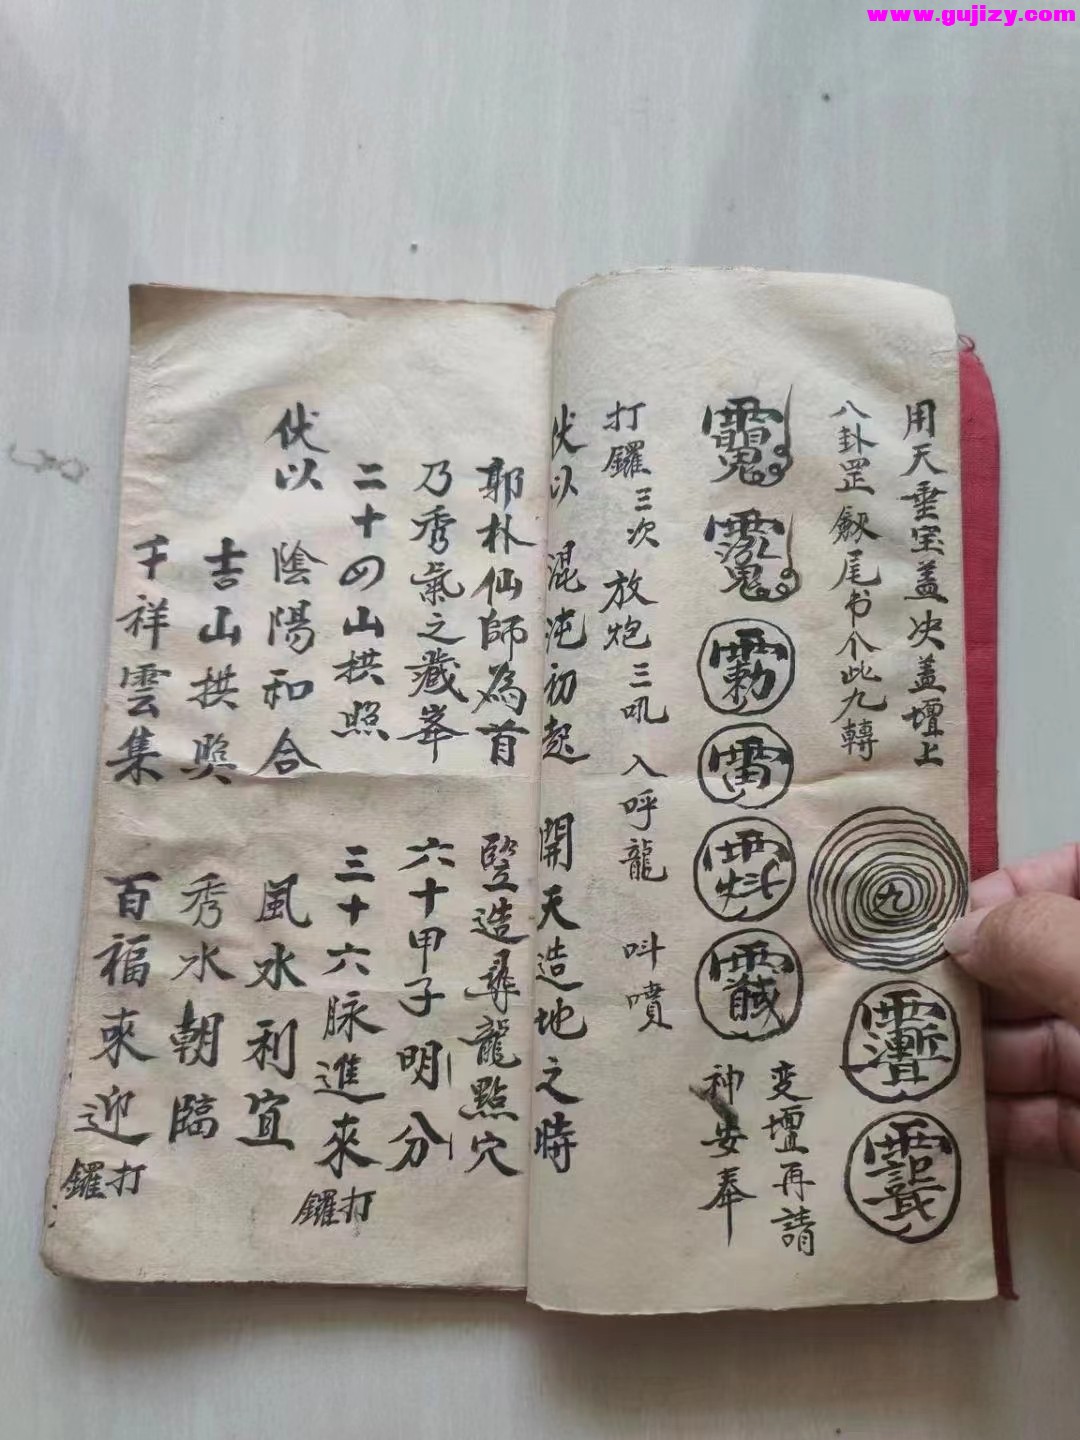 www.gujizy.com
用天垂宝盖决盖壇上
八卦罡
尾书个此九轉
九
変壇再請
神安奉
打鑼三次 放炮三吼 入呼龍 呌噴
伏以 混沌初起 開天造地之時
郭朴仙師為首 豎造尋龍點穴
乃秀氣之藏峯 六十甲子明分
二十四山拱照 三十六脉進來 打鑼
伏以 陰陽和合 風水利宜
吉山拱照 秀水朝臨
千祥雲集 百福來迎 打鑼